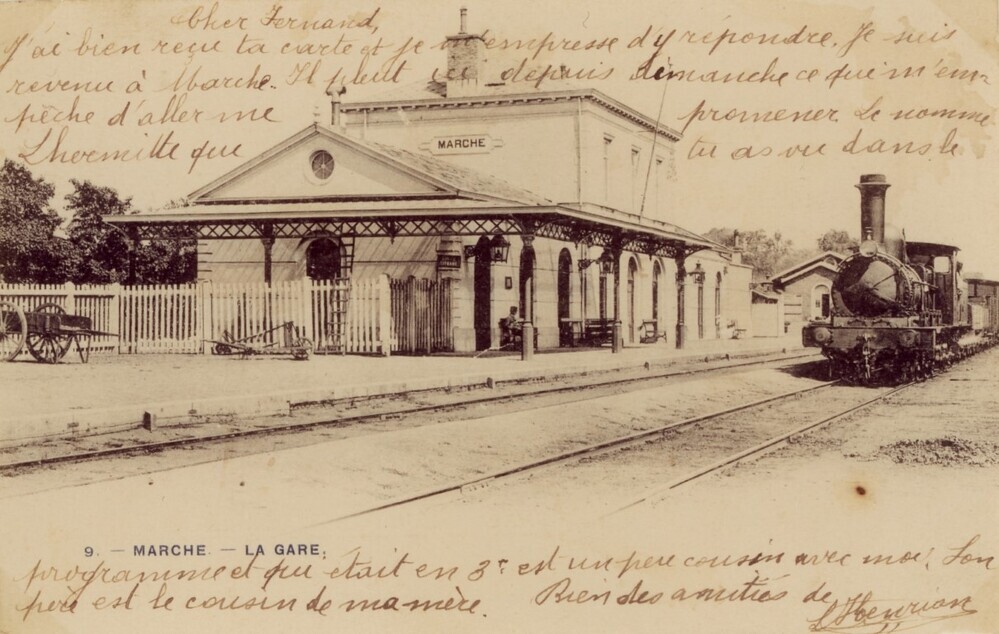 Cher Fernand,
J'ai bien reçu ta carte et je m'empresse d'y répondre. Je suis
revenu à Marche. Il pleut ici depuis dimanche ce qui m'em-
pêche d'aller me promener. Le nommé
Lhermitte que tu as vu dans le
MARCHE
9. — MARCHE — LA GARE.
programme et qui était en 3e est un peu cousin avec moi. Son
père est le cousin de ma mère. Bien des amitiés de
L Henrion